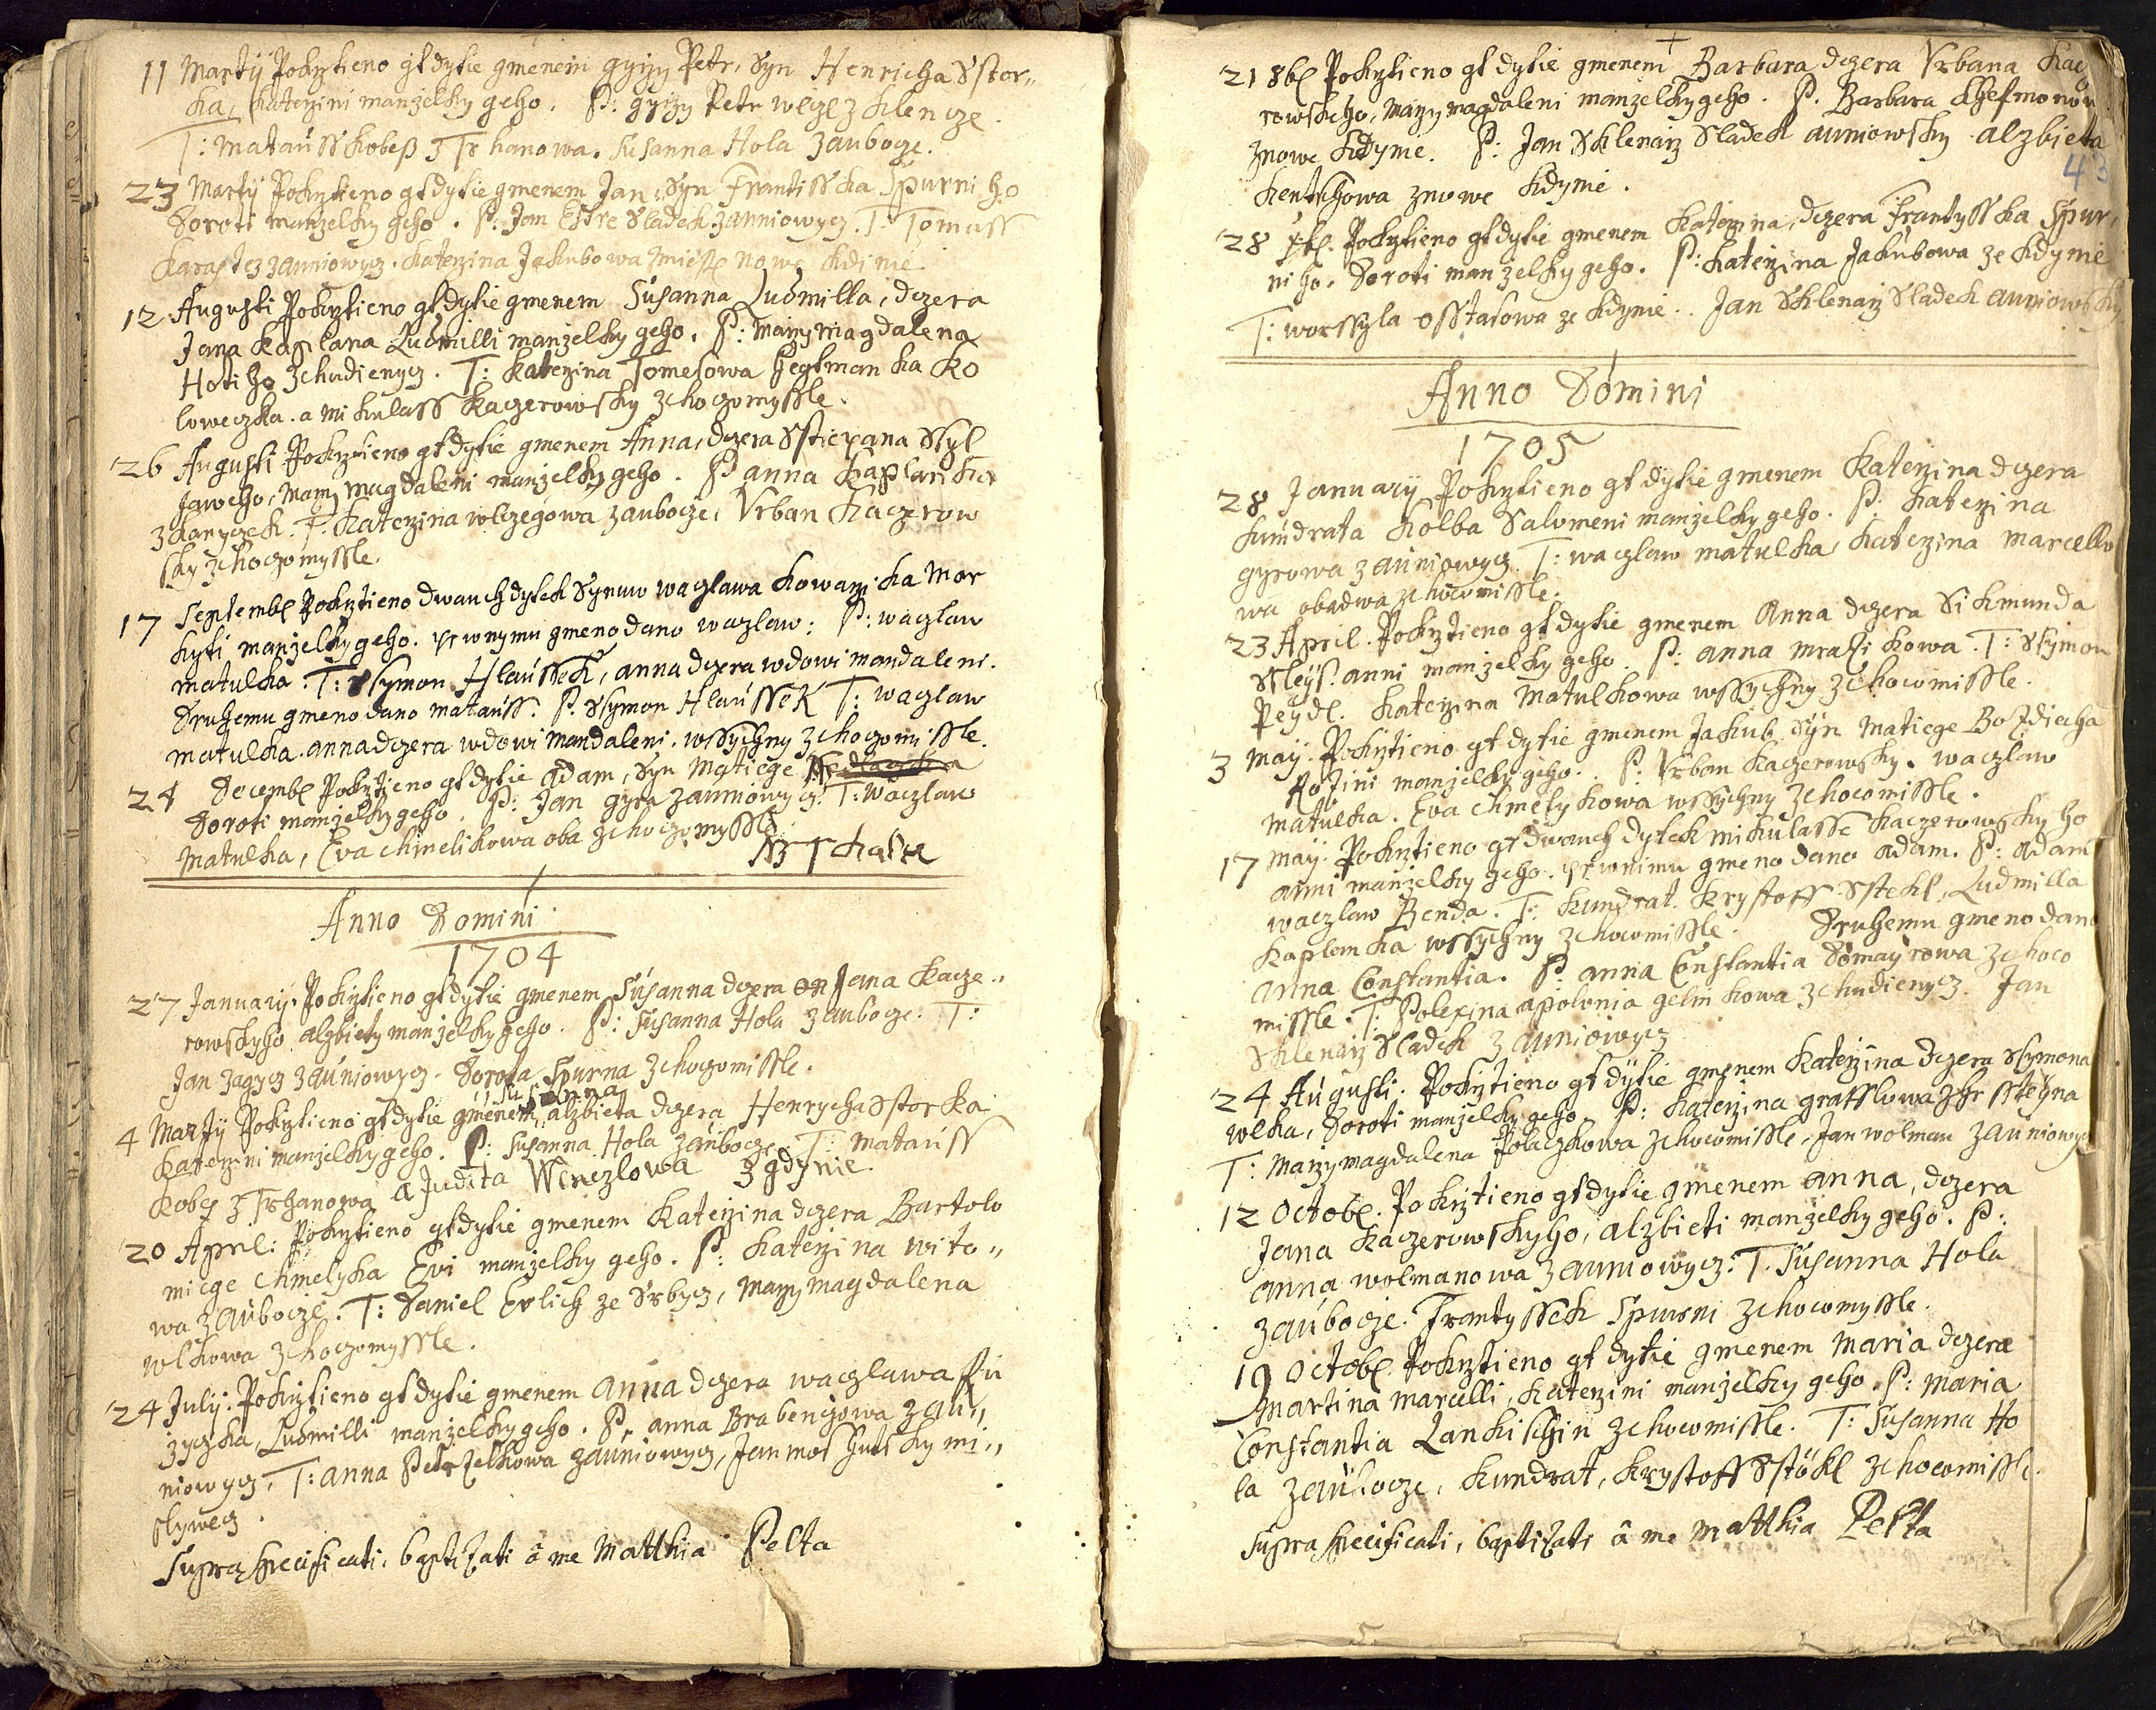 11 Martÿ Pokrztieno gt dytie gmenem gyrzy Petr, Syn Henricha Sstor„
ka, Katerzini manzelky geho. P: gyrzy Petr welgl z Klencze.
T: Mataussk Kobeß z Trhanowa. Susanna Hola z auboge.
23 Martÿ Pokrztieno gt dytie gmenem Jan, Syn Frantisska Spurniho
Doroti manzelky geho. P: Jan Sladek z auniowycz. T: Tomass
z auniowycz. Katerzina Jakubowa z miesta nowe kdinie
12 Augusti Pokrztieno gt dytie gmenem Susanna Ludmilla, dczera
Jana Kaplana Ludmilli manzelky geho. P: Marzymagdalena
Hotiho z chudienycz. T: Katerzina Tomesowa hegtmanka Ko
loweczka. a Mikulass Kaczerowsky z choczomyssle.
26 Augusti Pokrztieno gt dytie gmenem Anna, dczera Sstiepana Skyl
Jaweho, Marzy Magdaleni manzelky geho. P anna Kaplanka
z T. Katerzina wlczegowa z aubocze, Vrban Kaczerow
sky z choczomyssle.
17 Septemb: Pokrztieno dwauch dytek Synuw waczlawa kowarzika Mar
kyti manzelky geho. prwnymu gmeno dano waczlaw: P: waczlaw
matulka: T: Ssymon Hlaussek, anna dczera wdowi mandaleni.
Druhemu gmeno dano matauss. P. Ssymon Hlaussek T: waczlaw
matulka. anna dczera wdowi mandaleni. wssychny z choczomissle.
24 Decemb: Pokrztieno gt dytie adam, Syn Matiege
Doroti manzelky geho. P: Jan gyra z auniowycz: T: waczlaw
Matulka, Eva chmelikowa oba z choczomyssle

Anno Domini
1704
27 Januarÿ: Pokrztieno gt dytie gmenem Susanna dczera Jana Kacze„
rowskyho alzbiety manzelky geho. P: Susanna Hola z auboge. T:
Jan zagycz z auniowycz. Dorota Spurna z choczomissle.
Susanna
4 Martÿ Pokrztieno gt dytie gmenem, alzbieta dczera Henrycha Sstorka
Katerzini manzelky geho. P: Susanna Hola z aubocze. T: matauss
Kobes z Trhanowa a Judita Wenczlowa z gdynie
20 April: Pokrztieno gt dytie gmenem Katerzina dczera Bartolo
miege chmelyka Evi manzelky geho. P: Katerzina wito„
wa z aubocze. T: Daniel Erlich ze Srbycz, Marzymagdalena
wlkowa z choczomyssle.
24 July: Pokrztieno gt dytie gmenem anna dczera waczlawa Ru
zyczka, Ludmilli manzelky geho. P. anna Brabenczowa z au„
niowycz. T: anna Petrzelkowa z auniowycz, Jan mi„
slywecz.
Supra specificati, baptizati á me Matthia Pelta

21 8b: Pokrztieno gt dytie gmenem Barbara dczera Vrbana Kacz
rowskeho, Marzy magdaleni manzelky geho. P. Barbara
z nowe Kdyme. P: Jan Sklenarz Sladek auniowsky alzbieta
43
Kentrchowa z nowe Kdynie.
28 Pokrztieno gt dytie gmenem Katerzina, dczera Frantysska Spur„
niho. Doroti manzelky geho. P: Katerzina Jakubowa ze Kdynie
T: worssyla osstasowa ze Kdynie.. Jan Sklenarz Sladek auniowsky
Anno Domini
1705
28 Januarÿ Pokrztieno gt dytie gmenem Katerzina dczera
Kundrata Kolba Salomeni manzelky geho. P: Katerzina
gyrowa z auniowycz. T: waczlaw matulka, Katerzina Marcello
wa obadwa z chocomissle.
23 April. Pokrztieno gt dytie gmenem Anna dczera Sikmunda
Ssleys. anni manzelky geho. P: anna mrazikowa. T: Ssymon
Peydl. Katerzina Matulkowa wssychny z chocomissle.
3 May. Pokrztieno gt dytie gmenem Jakub Syn Matiege Bozdiecha
Rozini manzelky geho. P: Vrban Kaczerowsky. waczlaw
Matulka. Eva chmelykowa wssychny z chocomissle.
17 May. Pokrztieno gt dwauch dytek mikulasse Kaczerowskyho
anni manzelky geho. prwnimu gmeno dano adam. P: adam
waczlaw Benda. T: Kundrat Krystoff Sstekl, Ludmilla
Kaplanka wssychny z chocomissle. Druhemu gmeno dano
anna Constantia. P: anna Constantia Domayrowa z choco
missle. T: Polexina apolonia gelinkowa z chudienycz. Jan
Sklenarz Sladek z auniowycz
24 Augusti: Pokrztieno gt dytie gmenem Katerzina dczera Ssymona
wlka, Doroti manzelky geho. P: Katerzina
T: Marzymagdalena Polaczkowa z chocomissle, Jan wolman z auniowycz
12 Octob:. Pokrztieno gt dytie gmenem anna, dczera
Jana Kaczerowskyho, alzbieti manzelky geho. P:
anna wolmanowa z auniowycz: T. Susanna Hola
z aubocze. Frantyssek Spurni z chocomyssle.
19 Octob: Pokrztieno gt dytie gmenem Maria dczera
Martina Marcelli, Katerzini manzelky geho. P: Maria
Constantia Lankischin z chocomissle. T: Susanna Ho
la z aubocze, Kundrat, Krystoff Sstökl z chocomissle.
Supra specificati, baptizati á me Matthia Pelta